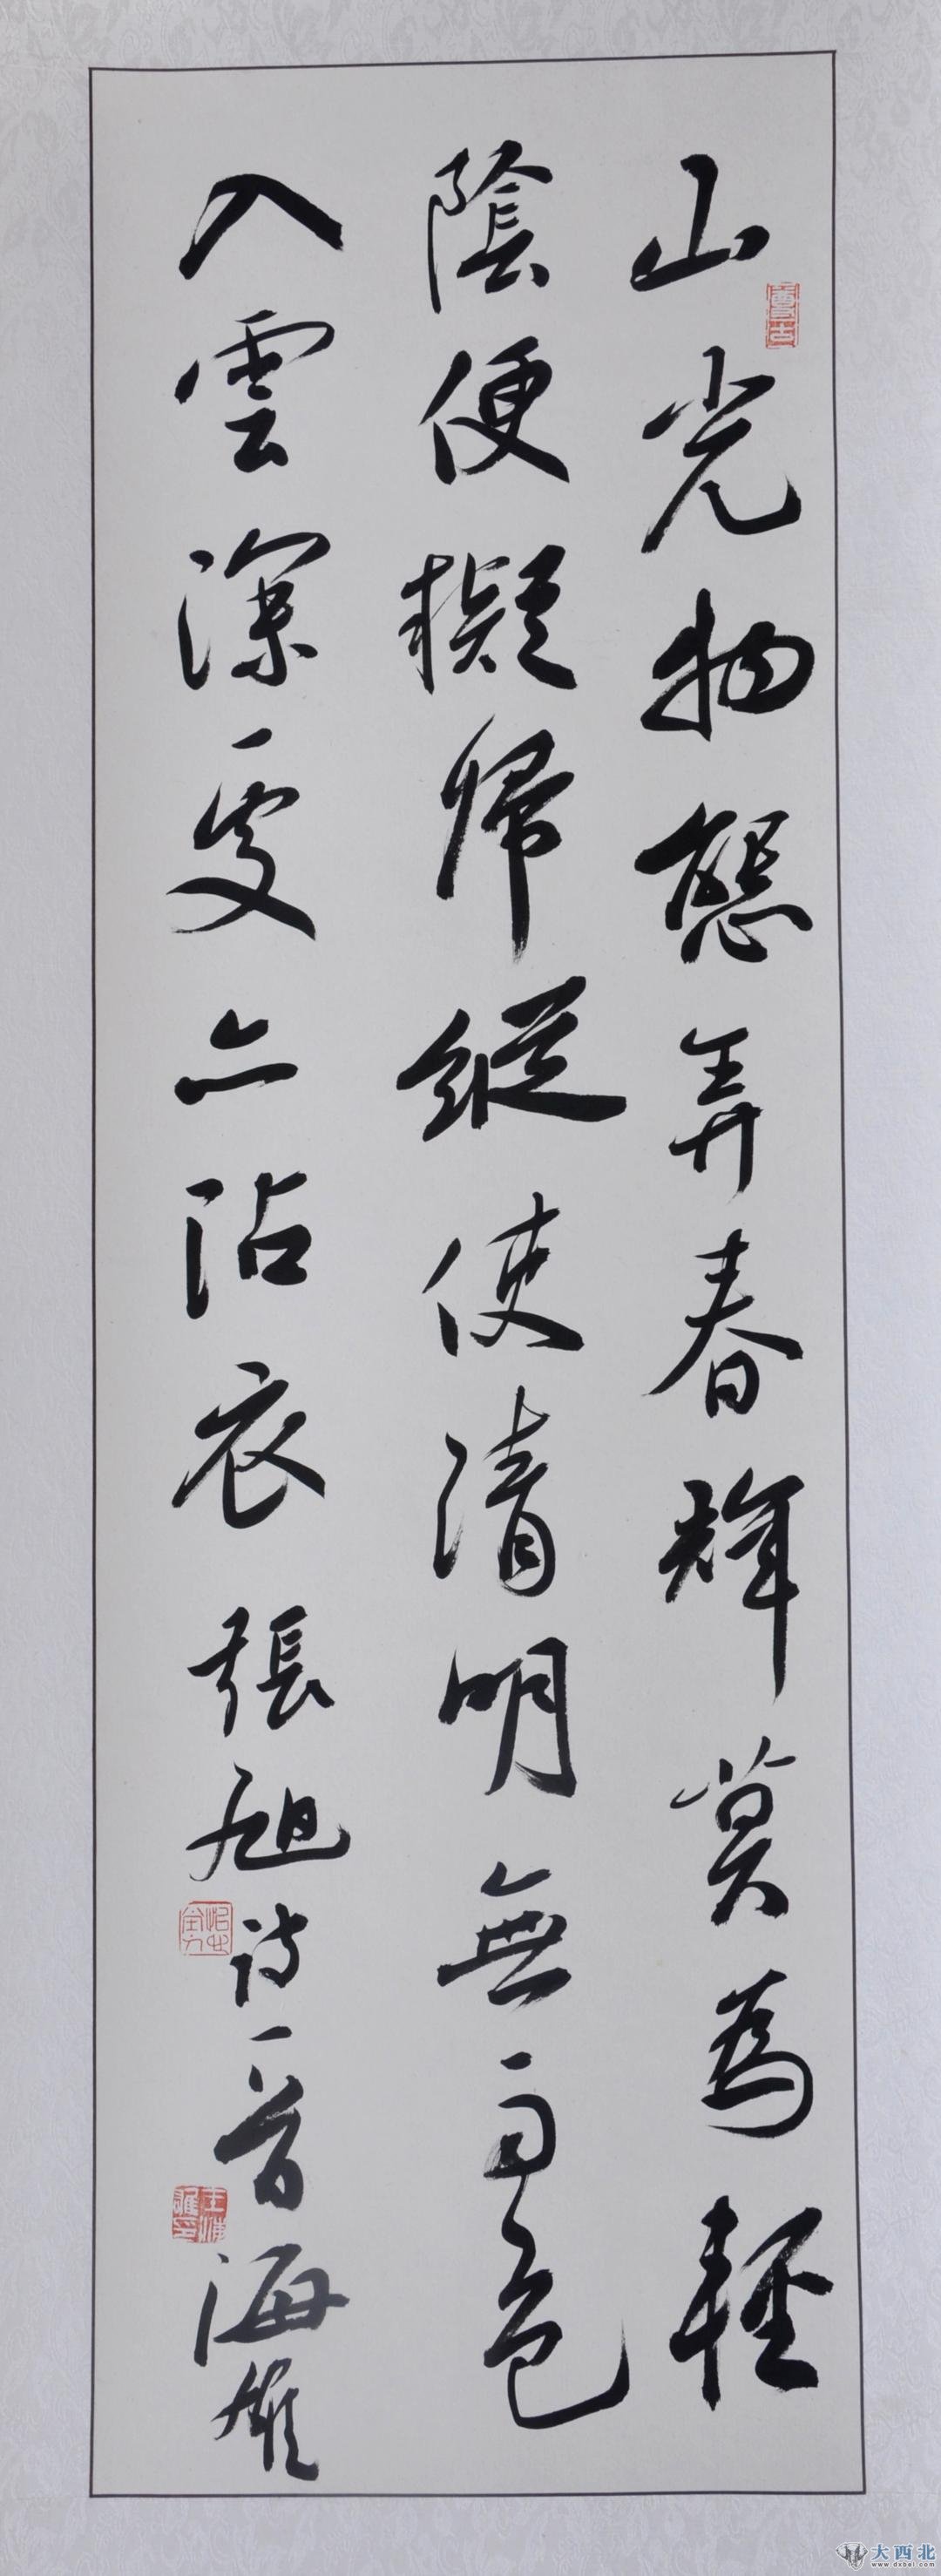 山光物態弄春輝莫為輕
陰便擬歸縱使清明無雨色
入雲深處亦沾衣張旭詩一首海雄
大西北
www.dxbei.com